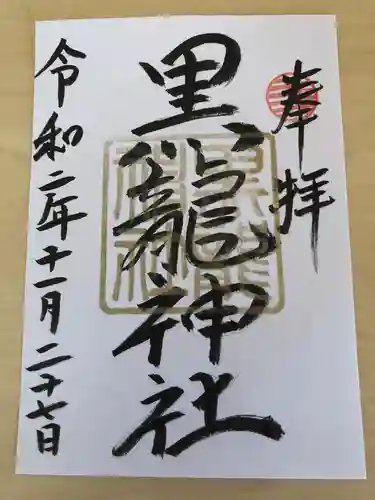 奉拝
黒龍神社
令和二年十一月二十七日
黒龍神社